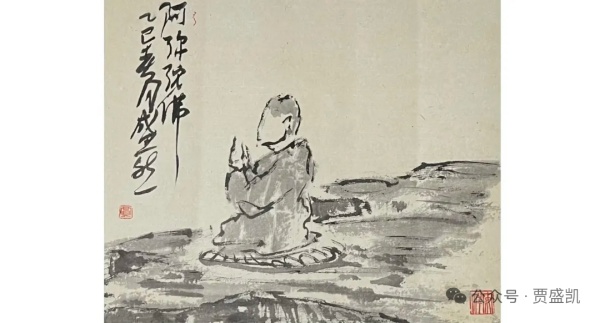 阿弥陀佛
乙巳春月盛凯
公众号·贾盛凯